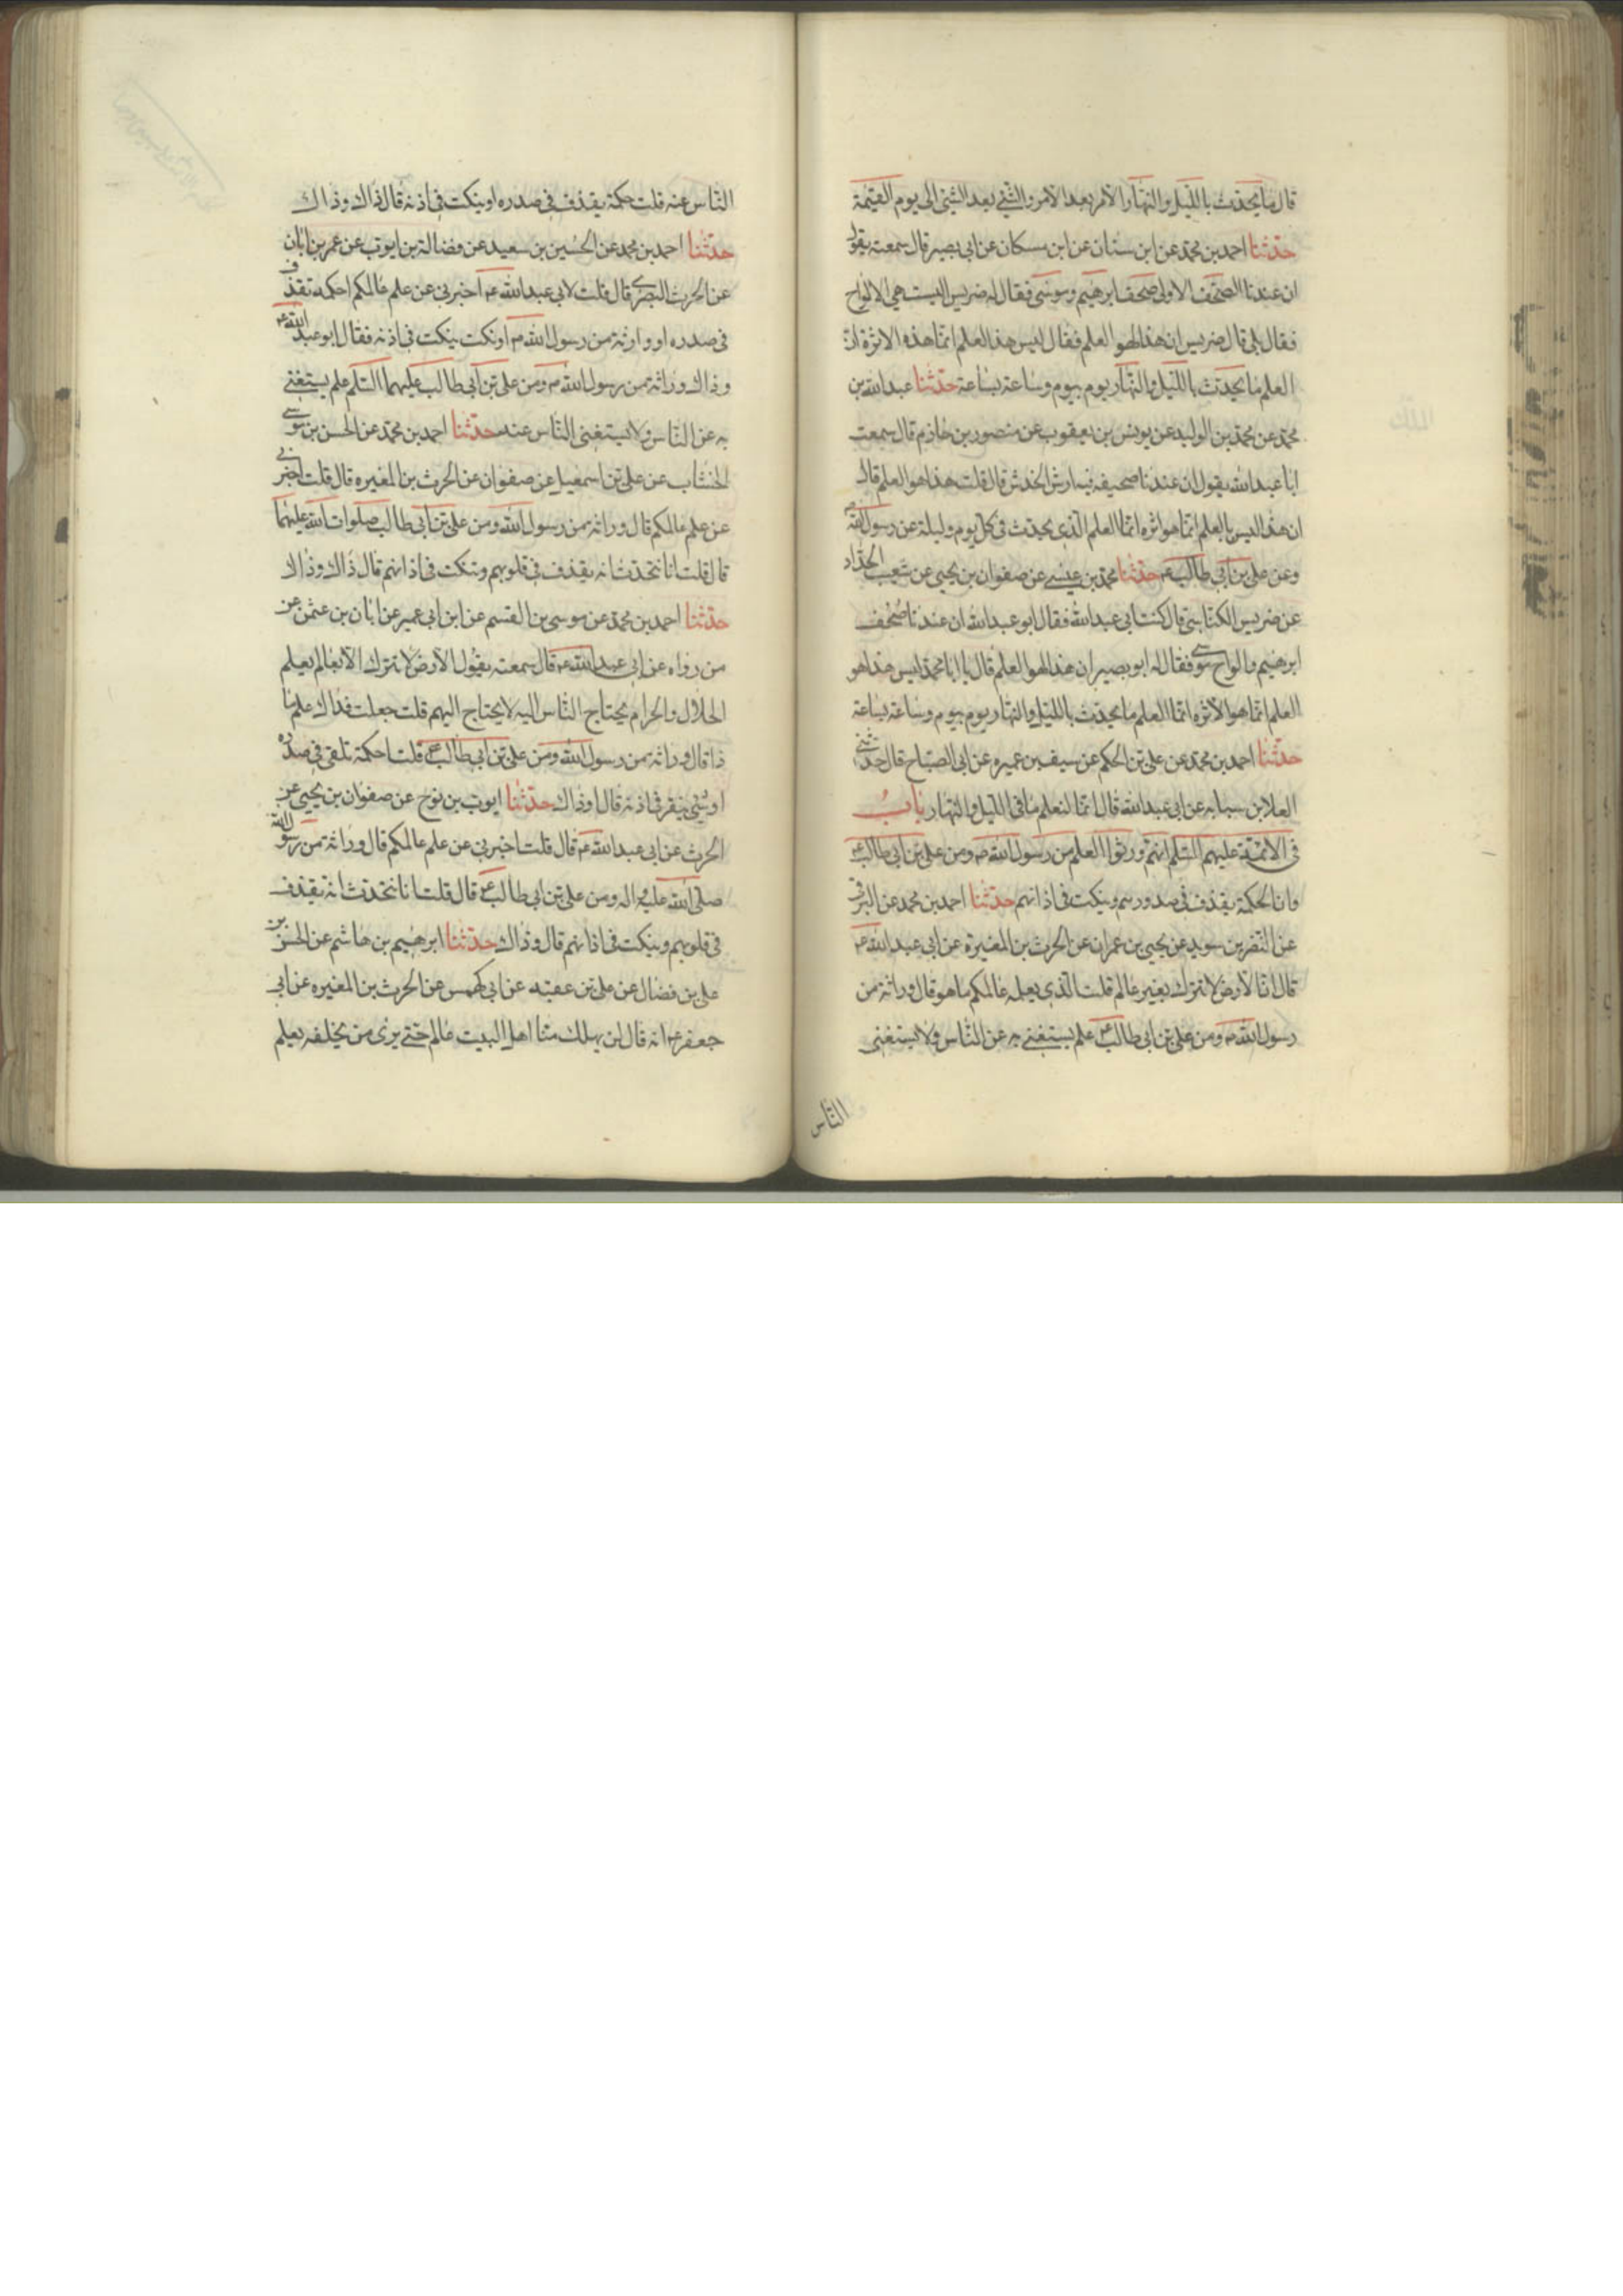 قال ما يحدث بالليل والنهار الامر بعد الامر والشئ بعد الشئ الى يوم القيمة
حدثنا احمد بن محمد عن ابن سنان عن ابن مسكان عن ابى بصير قال سمعته يقول
ان عندنا الصحف الاولى صحف ابرهيم وموسى فقال له ضريس اليست هى الالواح
فقال بلى قال ضريس ان هذا لهو العلم فقال ليس هذا العلم انما هذه الاثرة ان
العلم ما يحدث بالليل والنهار يوم بيوم وساعة بساعة حدثنا عبد الله بن
محمد عن محمد بن الوليد عن يونس بن يعقوب عن منصور بن حازم قال سمعت
ابا عبد الله يقول ان عندنا صحيفه فيها ارش الخدش قال قلت هذا هو العلم قال
ان هذا ليس بالعلم انما هو اثره انما العلم الذى يحدث فى كل يوم وليلة عن رسول الله ص
وعن على بن ابى طالب ع حدثنا محمد بن عيسى عن صفوان بن يحيى عن شعيب الحداد
عن ضريس الكناسى قال كنت ابى عبد الله فقال ابو عبد الله ان عندنا صحف
ابرهيم والواح موسى فقال له ابو بصير ان هذا لهو العلم قال يا ابا محمد ليس هذا هو
العلم انما هو الاثره انما العلم ما يحدث بالليل والنهار يوم بيوم وساعة بساعة
حدثنا احمد بن محمد عن على بن الحكم عن سيف بن عميره عن ابى الصباح قال حدثنى
العلا بن سيابه عن ابى عبد الله قال انا لنعلم ما فى الليل والنهار باب
فى الائمة عليهم السلم انهم ورثوا العلم من رسول الله ص ومن على بن ابى طالب ع
وان الحكمة يقذف فى صدورهم وينكت فى اذانهم حدثنا احمد بن محمد عن البرقى
عن النضر بن سويد عن يحيى بن عمران عن الحرث بن المغيرة عن ابى عبد الله ع
قال ان الارض لا تترك بغير عالم قلت الذى يعلمه عالمكم ما هو قال وراثة من
رسول الله ص ومن على بن ابى طالب ع علم يستغنى به عن الناس ولا يستغنى
الناس
الناس عنه قلت حكمة يقذف فى صدره او ينكت فى اذنه قال ذاك وذاك
حدثنا احمد بن محمد عن الحسين بن سعيد عن فضالة بن ايوب عن عمر بن ابان
عن الحرث البصرى قال قلت لابى عبد الله ع اخبرنى عن علم عالمكم احكمه تقذف
فى صدره او وراثة من رسول الله ص او نكت ينكت فى اذنه فقال ابو عبد الله ع
وذاك وراثة من رسول الله ص ومن على بن ابى طالب عليهما السلم علم يستغنى
به عن الناس ولا يستغنى الناس عنه حدثنا احمد بن محمد عن الحسن بن موسى
الخشاب عن على بن اسمعيل عن صفوان عن الحرث بن المغيره قال قلت اخبرنى
عن علم عالمكم قال وراثة من رسول الله ومن على بن ابى طالب صلوات الله عليهما
قال قلت انا نتحدث انه يقذف فى قلوبهم وينكت فى اذانهم قال ذاك وذاك
حدثنا احمد بن محمد عن موسى بن القسم عن ابن ابى عمير عن ابان بن عثمن عن
من رواه عن ابى عبد الله ع قال سمعته يقول الارض لا تترك الا بعالم يعلم
الحلال والحرام يحتاج الناس اليه لا يحتاج اليهم قلت جعلت فداك علم ما
ذا قال وراثة من رسول الله ومن على بن ابى طالب ع قلت احكمة تلقى فى صدره
او شئ ينقر فى اذنه قال او ذاك حدثنا ايوب بن نوح عن صفوان بن يحيى عن
الحرث عن ابى عبد الله ع قال قلت اخبرنى عن علم عالمكم قال وراثة من رسول الله
صلى الله عليه واله ومن على بن ابى طالب ع قال قلت انا نتحدث انه يقذف
فى قلوبهم وينكت فى اذانهم قال وذاك حدثنا ابرهيم بن هاشم عن الحسن بن
على بن فضال عن على بن عقبه عن ابى كهمس عن الحرث بن المغيره عن ابى
جعفر ع انه قال لن يهلك منا اهل البيت عالم حتى يرى من يخلفه يعلم